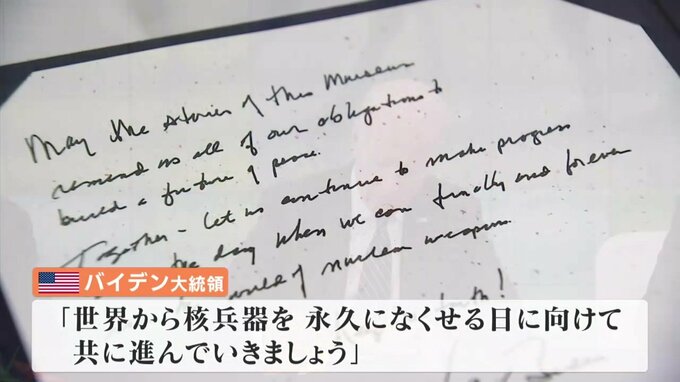 May the stories of this Museum
remind us all of our obligations to
build a future of peace.
Together - let us continue to make progress
the day when we can finally and forever
of nuclear weapons.
!
バイデン大統領
「世界から核兵器を 永久になくせる日に向けて
共に進んでいきましょう」